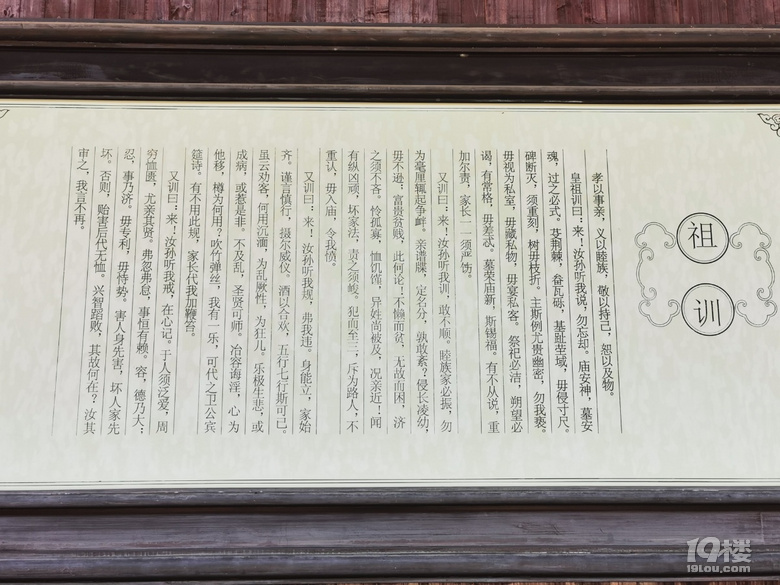 祖训
孝以事亲，义以睦族，敬以持己，恕以及物。
皇祖训曰：来！汝孙听我说，勿忘却。庙安神，墓安
魂，过之必式。芟荆棘，畚瓦砾，基趾茔域，毋侵寸尺。
碑断灭，须重刻，树毋枝折。主斯例尤贵幽密，勿我亵。
毋视为私室，毋藏私物，毋宴私客。祭祀必洁，朔望必
谒，有常格，毋差忒。墓荣庙新，斯锡福。有不从说，重
加尔责，家长一一须严饬。
又训曰：来！汝孙听我训，敢不顺。睦族家必振，勿
为毫厘辄起争衅。亲谱牒，定名分，孰敢紊？侵长凌幼，
毋不逊：富贵贫贱，此何论！不懒而贫，无故而困，济
之须不吝。怜孤寡，恤饥馑，异姓尚被及，况亲近！闻
有纵凶顽，坏家法，责之须峻。犯而至三，斥为路人，不
重认，毋入庙，令我愤。
又训曰：来！汝孙听我规，弗我违。身能立，家始
齐。谨言慎行，摄尔威仪。酒以合欢，五行七行斯可已。
虽云劝客，何用沉湎，为乱厥性，为狂儿。乐极生悲，或
成病，或惹是非。不及乱，圣贤可师。冶容诲淫，心为
他移，樽为何用？吹竹弹丝，我有一乐，可代之卫公宾
筵诗。有不用此规，家长代我加鞭笞。
又训曰：来！汝孙听我戒，在心记。于人须泛爱，周
穷恤匮，尤亲其贤。弗忽弗怠，事恒有赖。容，德乃大；
忍，事乃济。毋专利，毋恃势。害人身先害，坏人家先
坏。否则，贻害后代无恤。兴智蹈败，其故何在？汝其
审之，我言不再。
19楼
19lou.com